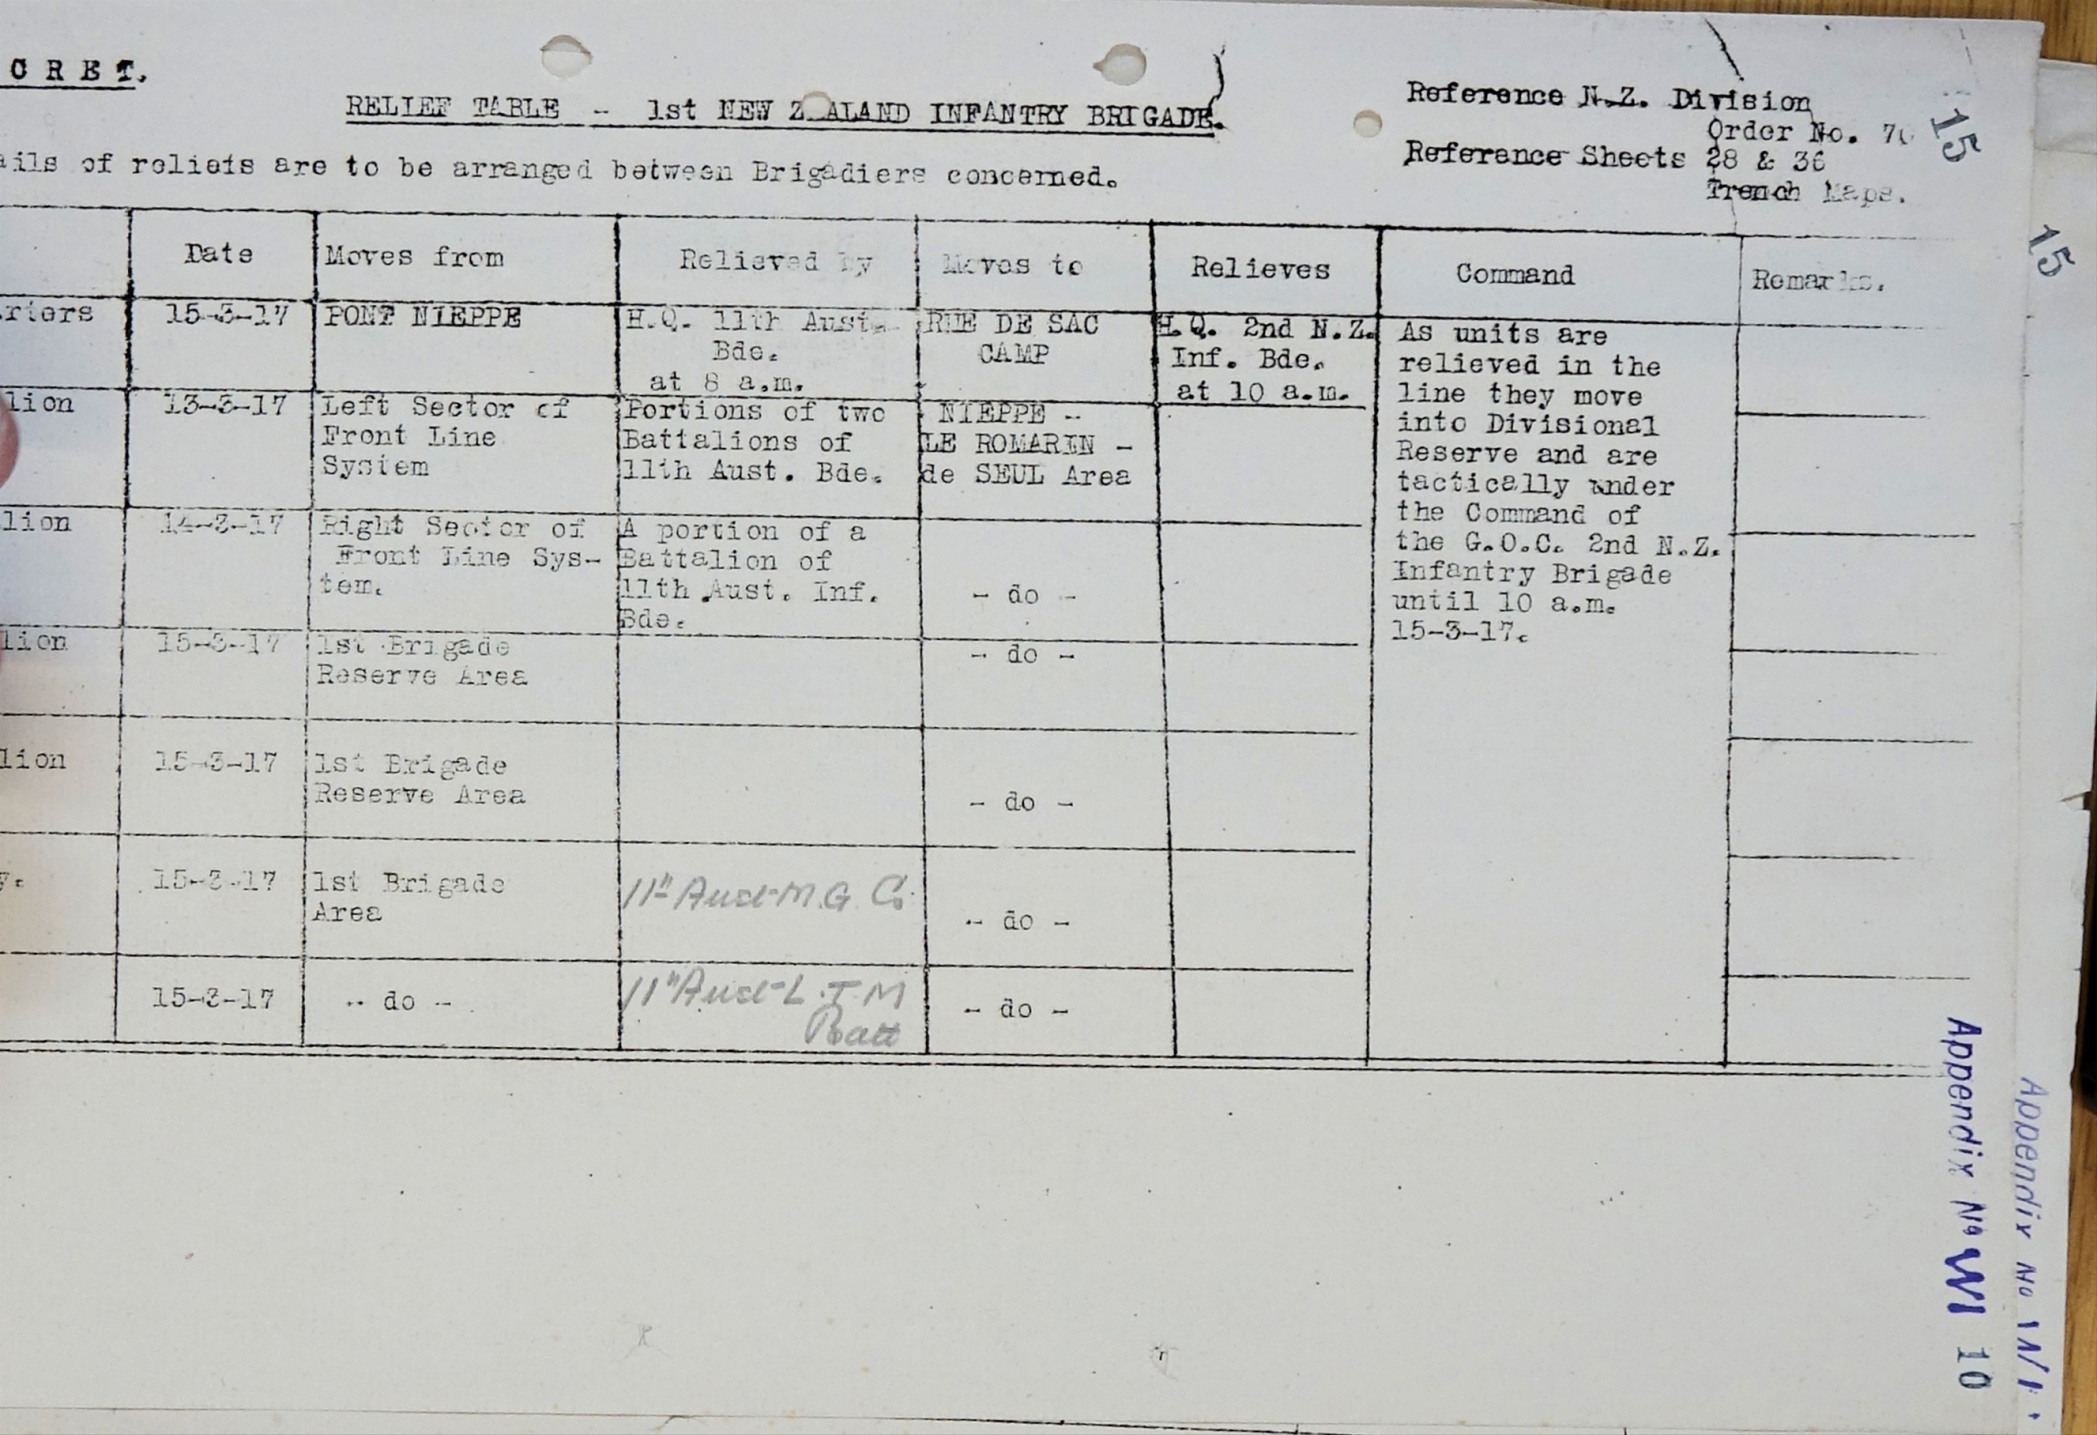 CRET.
RELIEF TABLE - 1st NEW Z ALAND INFANTRY BRIGADE.
Reference N.Z. Division
Order No. 70
Reference Sheets 28 & 36
Trench Maps.
ails of reliefs are to be arranged between Brigadiers concerned.
Date
Moves from
Relieved by
Moves to
Relieves
Command
Remarks.
rters
15-3-17
PONT NIEPPE
H.Q. 11th Aust.
Bde.
at 8 a.m.
RUE DE SAC
CAMP
H.Q. 2nd N.Z.
Inf. Bde.
at 10 a.m.
As units are
relieved in the
line they move
into Divisional
Reserve and are
tactically under
the Command of
the G.O.C. 2nd N.Z.
Infantry Brigade
until 10 a.m.
15-3-17.
lion
13-3-17
Left Sector of
Front Line
System
Portions of two
Battalions of
11th Aust. Bde.
NIEPPE -
LE ROMARIN -
de SEUL Area
lion
14-3-17
Right Sector of
Front Line Sys-
tem.
A portion of a
Battalion of
11th Aust. Inf.
Bde.
- do -
lion
15-3-17
1st Brigade
Reserve Area
- do -
lion
15-3-17
1st Brigade
Reserve Area
- do -
y.
15-3-17
1st Brigade
Area
11th Aust M.G. Co.
- do -
15-3-17
- do -
11th Aust L.T.M
Batt
- do -
15
15
Appendix No VVI 10
Appendix No